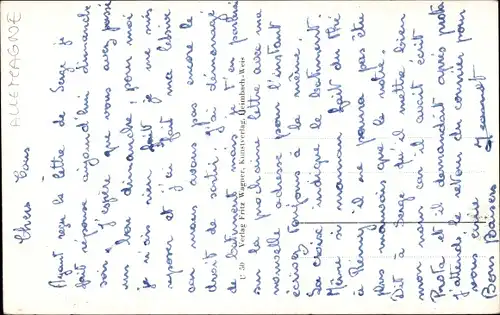 ALLEMAGNE
Chers Tous
Ayant reçu la lettre de Serge je
fait réponse aujourd'hui dimanche
soir, j'espère que vous avez passé
un bon dimanche, pour moi
je n'ais rien fait je me suis
reposer et j'ai fait ma lessive
car nous avons pas encore le
droit de sortir. j'ai démenagé
de batiment mais je t'en
sur la prochaine lettre avec ma
nouvelle adresse pour l'instant
écrivez toujours à la même.
La croix indique le batiment.
Même si maman fait du thé
à Rémy il ne pourra pas être
plus mauvais que le notre.
Dit à Serge qu'il mettre bien
mon nom car il avait écrit
Prota et il demandait après prota
J'attends le retour du courrier pour
vous écrire
Bons Baisers Jeannot
U 50 Verlag Fritz Wagner, Kunstverlag, Heimbach-Weis